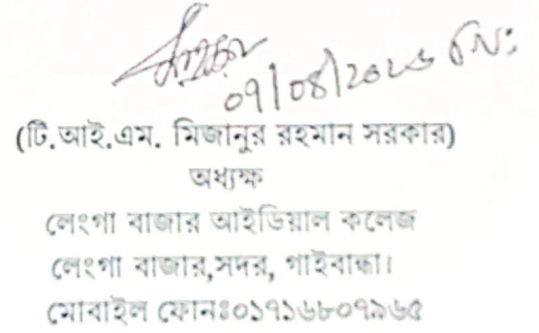 ০৭/০৪/২০২৬ খ্রিঃ
(টি.আই.এম. মিজানুর রহমান সরকার)
অধ্যক্ষ
লেংগা বাজার আইডিয়াল কলেজ
লেংগা বাজার,সদর, গাইবান্ধা।
মোবাইল ফোনঃ০১৭১৬৮০৭৯৬৫